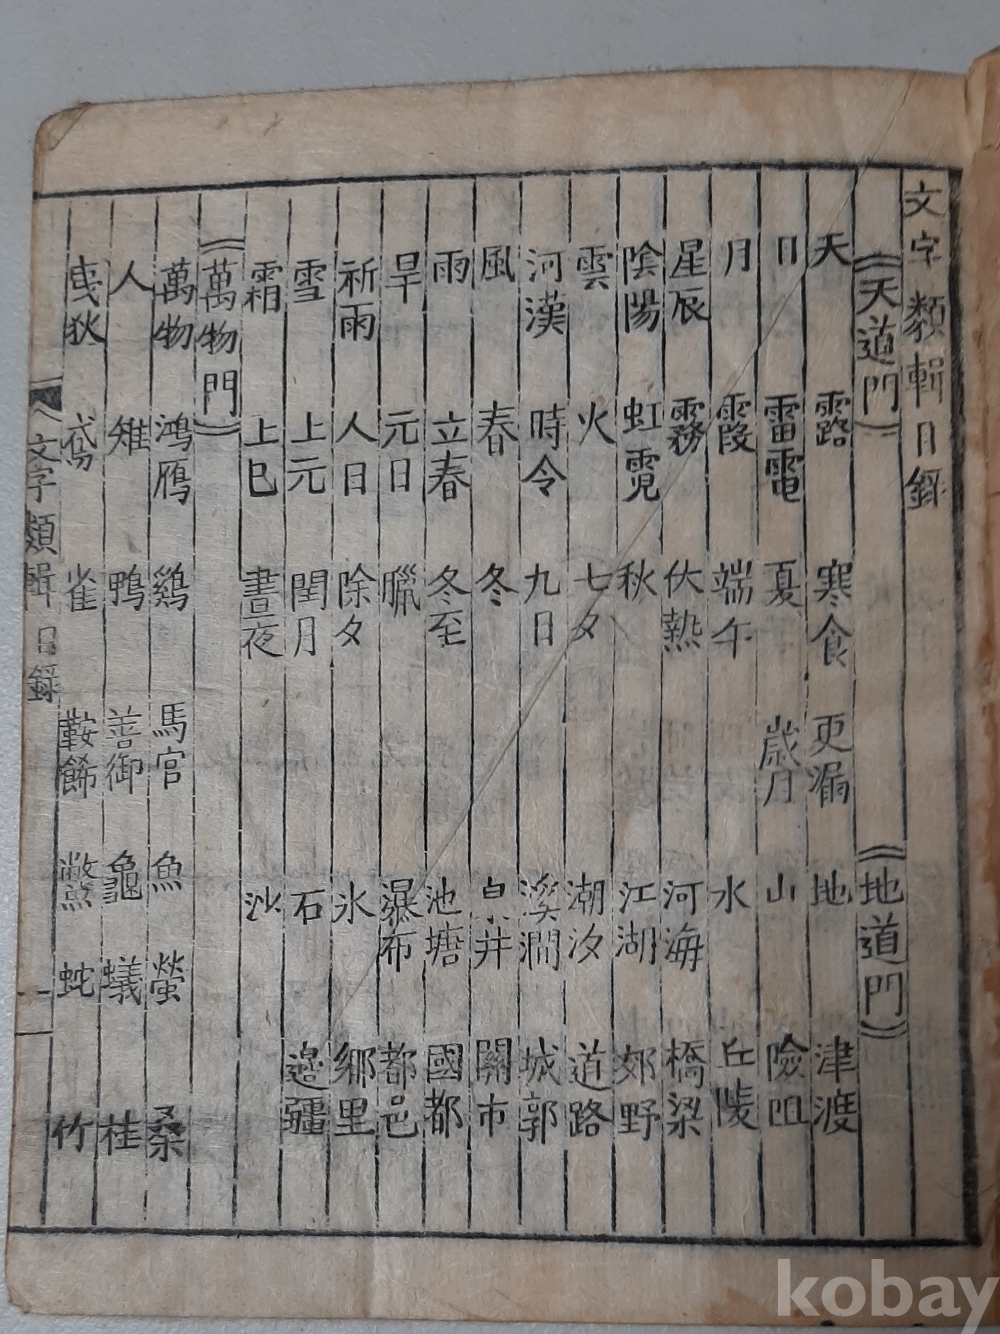 文字類輯目錄
《天道門》 《地道門》
天 露 寒食 更漏 地 津渡
日 雷電 夏 歲月 山 險阻
月 霞 端午 水 丘陵
星辰 霧 伏熱 河海 橋梁
陰陽 虹霓 秋 江湖 郊野
雲 火 七夕 潮汐 道路
河漢 時令 九日 溪澗 城郭
風 春 冬 泉井 關市
雨 立春 冬至 池塘 國都
旱 元日 臘 瀑布 都邑
祈雨 人日 除夕 氷 鄉里
雪 上元 閏月 石 邊疆
霜 上巳 晝夜 沙
《萬物門》
萬物 鴻鴈 鷄 馬官 魚 螢 桑
人 雉 鴨 善御 龜 蟻 桂
夷狄 雀 鼈 蛇 竹
文字類輯 目錄 一
kobay